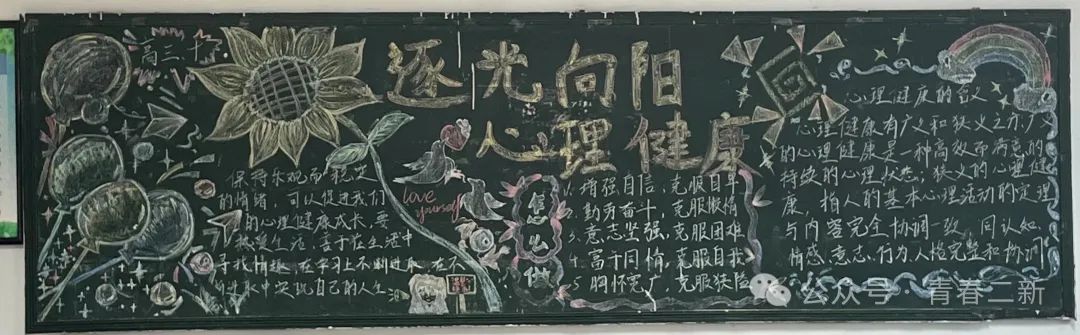 高三十
逐光向阳
心理健康
保持乐观而稳定
的情绪，可以促进我们
的心理健康成长，要
热爱生活，善于在生活中
寻找情趣，在学习上不断进取，在不
进取中实现自己的人生
love
yourself
怎么做
1.增强自信，克服自卑
2.勤劳奋斗，克服懒惰
3.意志坚强，克服困难
4.富于同情，克服自我
5.胸怀宽广，克服狭隘
心理健康的含义
心理健康有广义和狭义之分，广义
的心理健康是一种高效而满意的
持续的心理状态，狭义的心理健
康，指人的基本心理活动的定理
与内容完全协调一致，同认知
情感、意志、行为、人格完整和协调
公众号·青春二新